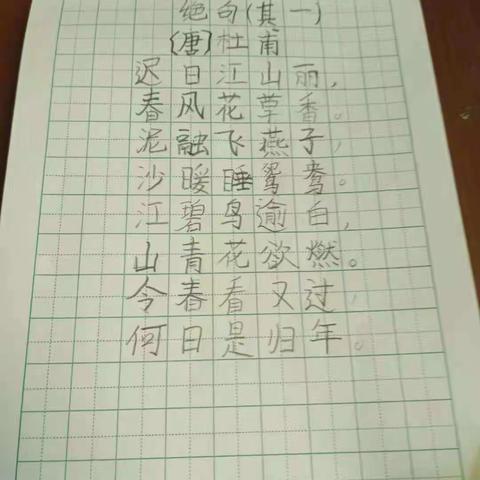 绝句(其一)
[唐]杜甫
迟日江山丽,
春风花草香。
泥融飞燕子,
沙暖睡鸳鸯。
江碧鸟逾白,
山青花欲燃。
今春看又过,
何日是归年。